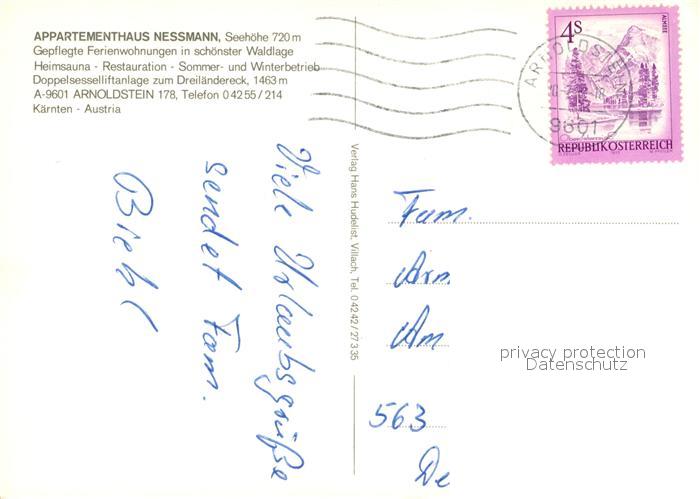 APPARTEMENTHAUS NESSMANN, Seehöhe 720 m
Gepflegte Ferienwohnungen in schönster Waldlage
Heimsauna - Restauration - Sommer- und Winterbetrieb
Doppelsesselliftanlage zum Dreiländereck, 1463 m
A-9601 ARNOLDSTEIN 178, Telefon 0 42 55 / 214
Kärnten - Austria
4S
ALMSEE
ARNOLDSTEIN
9601
REPUBLIK ÖSTERREICH
Verlag Hans Hudelist, Villach, Tel. 0 42 42 / 27 3 35
Viele Urlaubsgrüße
sendet Fam.
Biehl
Fam.
Arm
Am
563
De
privacy protection
Datenschutz